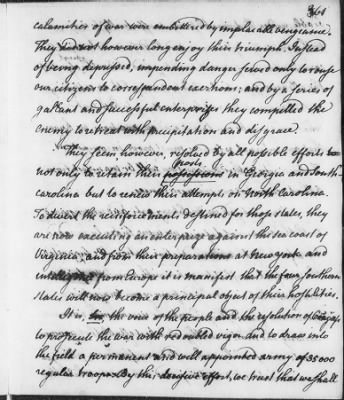 361
calamities of war were embittered by implacable vengeance.
They did not however long enjoy their triumph. Instead
of being depressed, impending danger served only to rouse
our citizens to correspondent exertions; and by a series of
gallant and successful enterprizes they compelled the
enemy to retreat with precipitation and disgrace.
They seem however, resolved by all possible efforts
not only to retain their possessions in Georgia and South-
posts
carolina but to renew their attempts on North Carolina.
To divert the reinforcements destined for those states, they
are now executing an enterprize against the sea coast of
Virginia; and from their preparations at New york and
intelligence from Europe it is manifest that the four Southern
states will now become a principal object of their hostilities.
It is, the voice of the people and the resolution of Congress
to prosecute the war with redoubled vigor and to draw into
the field a permanent and well appointed army of 35000
regular troops. By this decisive effort, we trust that we shall